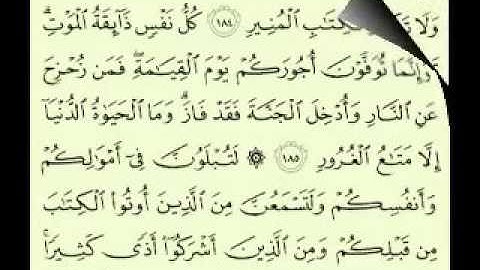 وَلَا ٱلْكِتَٰبِ ٱلْمُنِيرِ ١٨٤ كُلُّ نَفْسٍ ذَآئِقَةُ ٱلْمَوْتِ ۗ
وَإِنَّمَا تُوَفَّوْنَ أُجُورَكُمْ يَوْمَ ٱلْقِيَٰمَةِ ۖ فَمَن زُحْزِحَ
عَنِ ٱلنَّارِ وَأُدْخِلَ ٱلْجَنَّةَ فَقَدْ فَازَ ۗ وَمَا ٱلْحَيَوٰةُ ٱلدُّنْيَآ
إِلَّا مَتَٰعُ ٱلْغُرُورِ ١٨٥ ۞ لَتُبْلَوُنَّ فِىٓ أَمْوَٰلِكُمْ
وَأَنفُسِكُمْ وَلَتَسْمَعُنَّ مِنَ ٱلَّذِينَ أُوتُوا۟ ٱلْكِتَٰبَ
مِن قَبْلِكُمْ وَمِنَ ٱلَّذِينَ أَشْرَكُوٓا۟ أَذًى كَثِيرًا ۚ